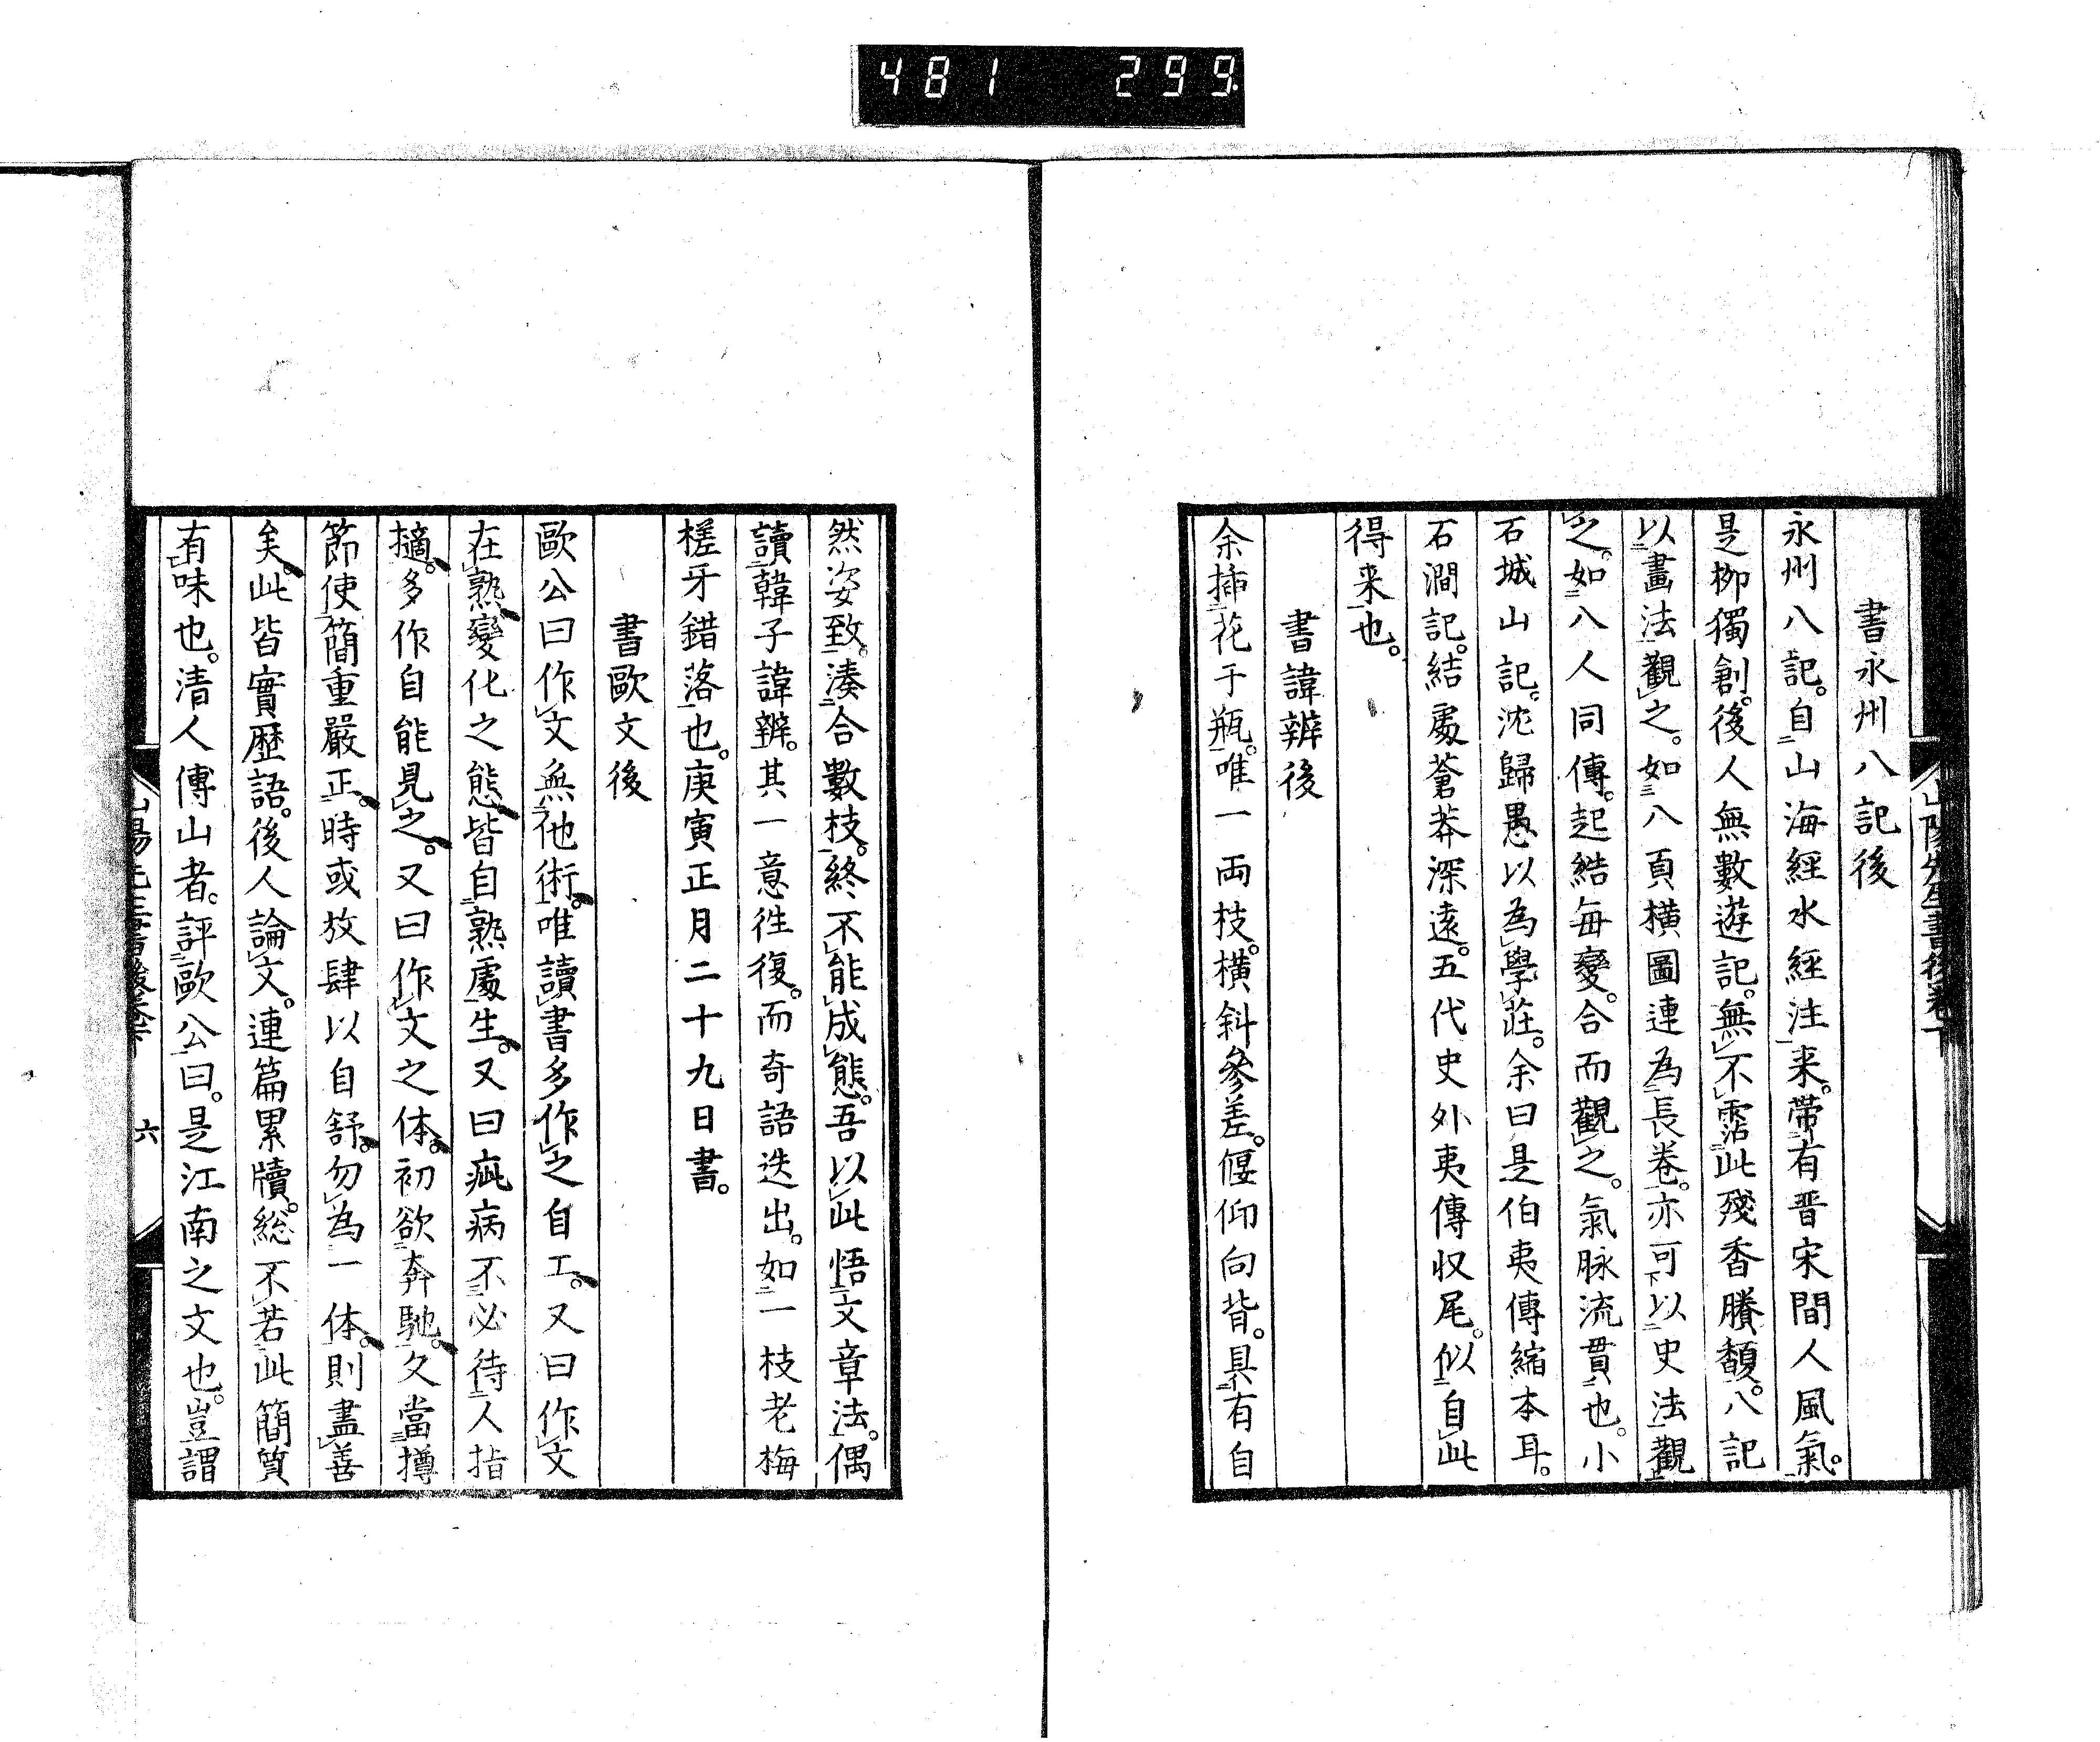 481 299
書永州八記後
永州八記。自山海經水經注来。帶有晋宋間人風氣。
是柳獨創。後人無數遊記。無不霑此殘香賸馥。八記
以畫法觀之。如八頁横圖連為長卷。亦可以史法觀
之。如八人同傳。起結毎變。合而觀之。氣脉流貫也。小
石城山記。沈歸愚以為學莊。余曰是伯夷傳縮本耳。
石澗記。結處蒼莽深遠。五代史外夷傳収尾。似自此
得来也。
書諱辨後
余挿花于瓶。唯一両枝。横斜參差。偃仰向背。具有自
山陽先生書後卷下
然姿致。湊合數枝。終不能成態。吾以此悟文章法。偶
讀韓子諱辨。其一意徃復。而奇語迭出。如一枝老梅
槎牙錯落也。庚寅正月二十九日書。
書歐文後
歐公曰作文無他術。唯讀書多作之自工。又曰作文
在熟變化之態皆自熟處生。又曰疵病不必待人指
擿。多作自能見之。又曰作文之体。初欲奔馳。久當撙
節使簡重嚴正。時或放肆以自舒。勿為一体。則盡善
矣。此皆實歴語。後人論文。連篇累牘。総不若此簡質
有味也。清人傳山者。評歐公曰。是江南之文也。豈謂
山陽先生書後卷下 六